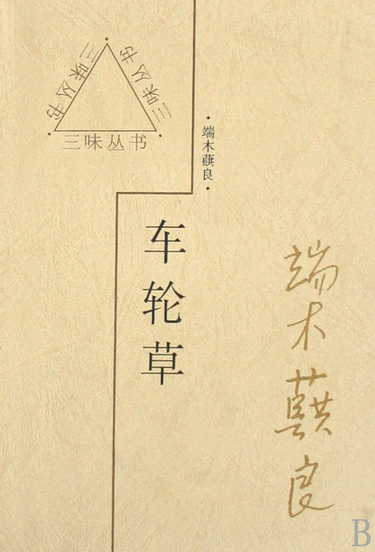 三味丛书
三味丛书
三味丛书
·端木蕻良·
车轮草
端木蕻良
B